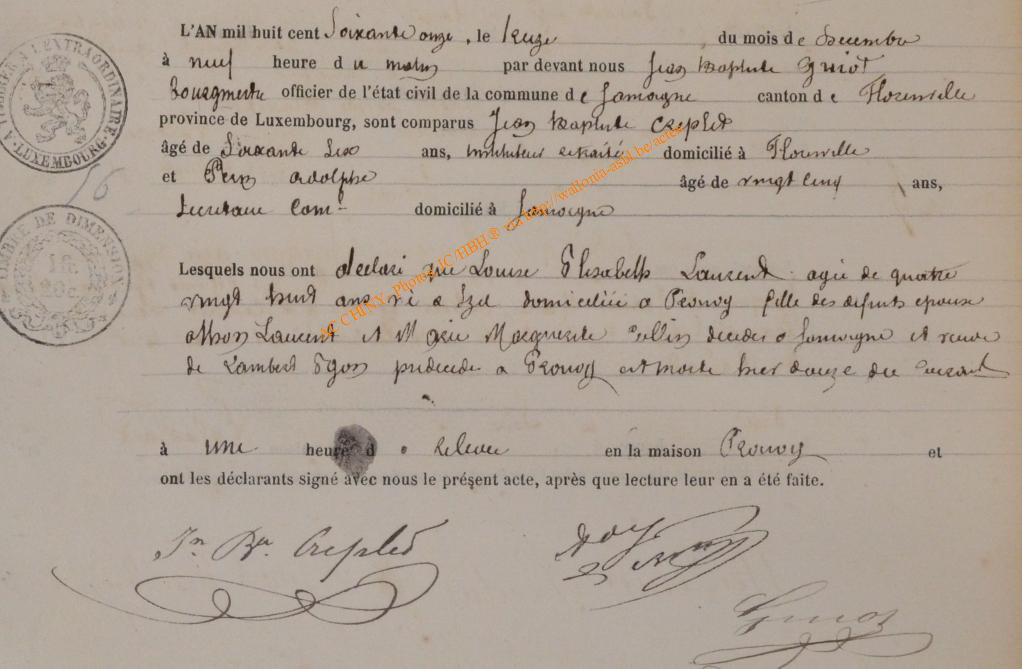 L'AN mil huit cent Soixante onze, le treize du mois de Decembre
à neuf heure du matin par devant nous Jean Baptiste Guiot
Bourgmestre officier de l'état civil de la commune de Jamoigne canton de Florenville
province de Luxembourg, sont comparus Jean Baptiste Creplet
âgé de Soixante six ans, instituteur retraité domicilié à Florenville
et Adolphe âgé de vingt cinq ans,
Secretaire Com¹ domicilié à Jamoigne
Lesquels nous ont déclaré que Louise Elisabeth Laurent agée de quatre
vingt huit ans né a Izel domiciliée a Prouvy fille des defunts epoux
Laurent et Marie Marguerite decedes a Jamoigne et veuve
de Lambert predecede a Prouvy est morte hier douze du courant
à une heure de relevee en la maison Prouvy et
ont les déclarants signé avec nous le présent acte, après que lecture leur en a été faite.
Jn Bte Creplet
Guiot
A TIMBRER A L'EXTRAORDINAIRE
LUXEMBOURG
16
TIMBRE DE DIMENSION
1 fr.
AC CHINY - Photos JC/HBH® via http://wallonia-asbl.be/actes